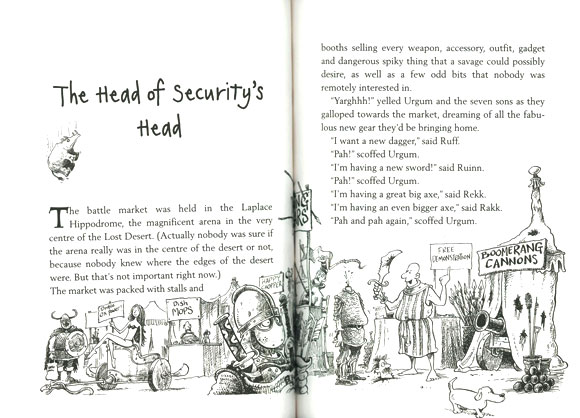 The Head of Security's
Head
The battle market was held in the Laplace
Hippodrome, the magnificent arena in the very
centre of the Lost Desert. (Actually nobody was sure if
the arena really was in the centre of the desert or not,
because nobody knew where the edges of the desert
were. But that's not important right now.)
The market was packed with stalls and
DISH
MOPS
booths selling every weapon, accessory, outfit, gadget
and dangerous spiky thing that a savage could possibly
desire, as well as a few odd bits that nobody was
remotely interested in.
"Yarghhh!" yelled Urgum and the seven sons as they
galloped towards the market, dreaming of all the fabu-
lous new gear they'd be bringing home.
"I want a new dagger," said Ruff.
"Pah!" scoffed Urgum.
"I'm having a new sword!" said Ruinn.
"Pah!" scoffed Urgum.
"I'm having a great big axe," said Rekk.
"I'm having an even bigger axe," said Rakk.
"Pah and pah again," scoffed Urgum.
FREE
DEMONSTRATION
BOOMERANG
CANNONS